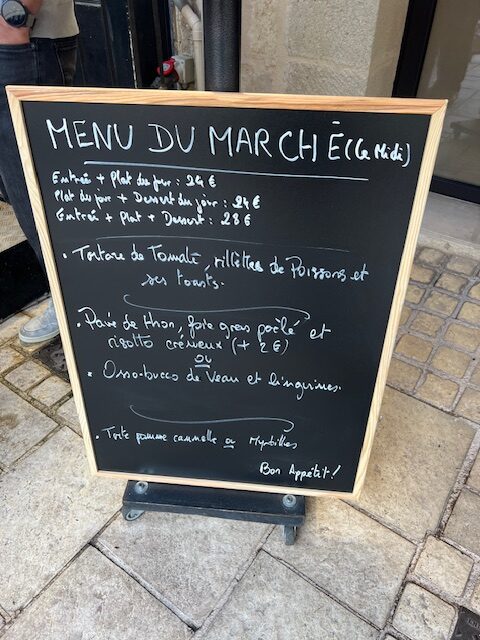 MENU DU MARCHÉ (Le Midi)
Entrée + Plat du jour : 24 €
Plat du jour + Dessert du jour : 24 €
Entrée + Plat + Dessert : 28 €
• Tartare de Tomate, rillettes de Poissons et
ses toasts.
• Pavé de thon, foie gras poêlé et
risotto crémeux (+ 2 €)
ou
• Osso-bucco de Veau et linguines.
• Tarte pomme cannelle ou Myrtilles
Bon Appétit !